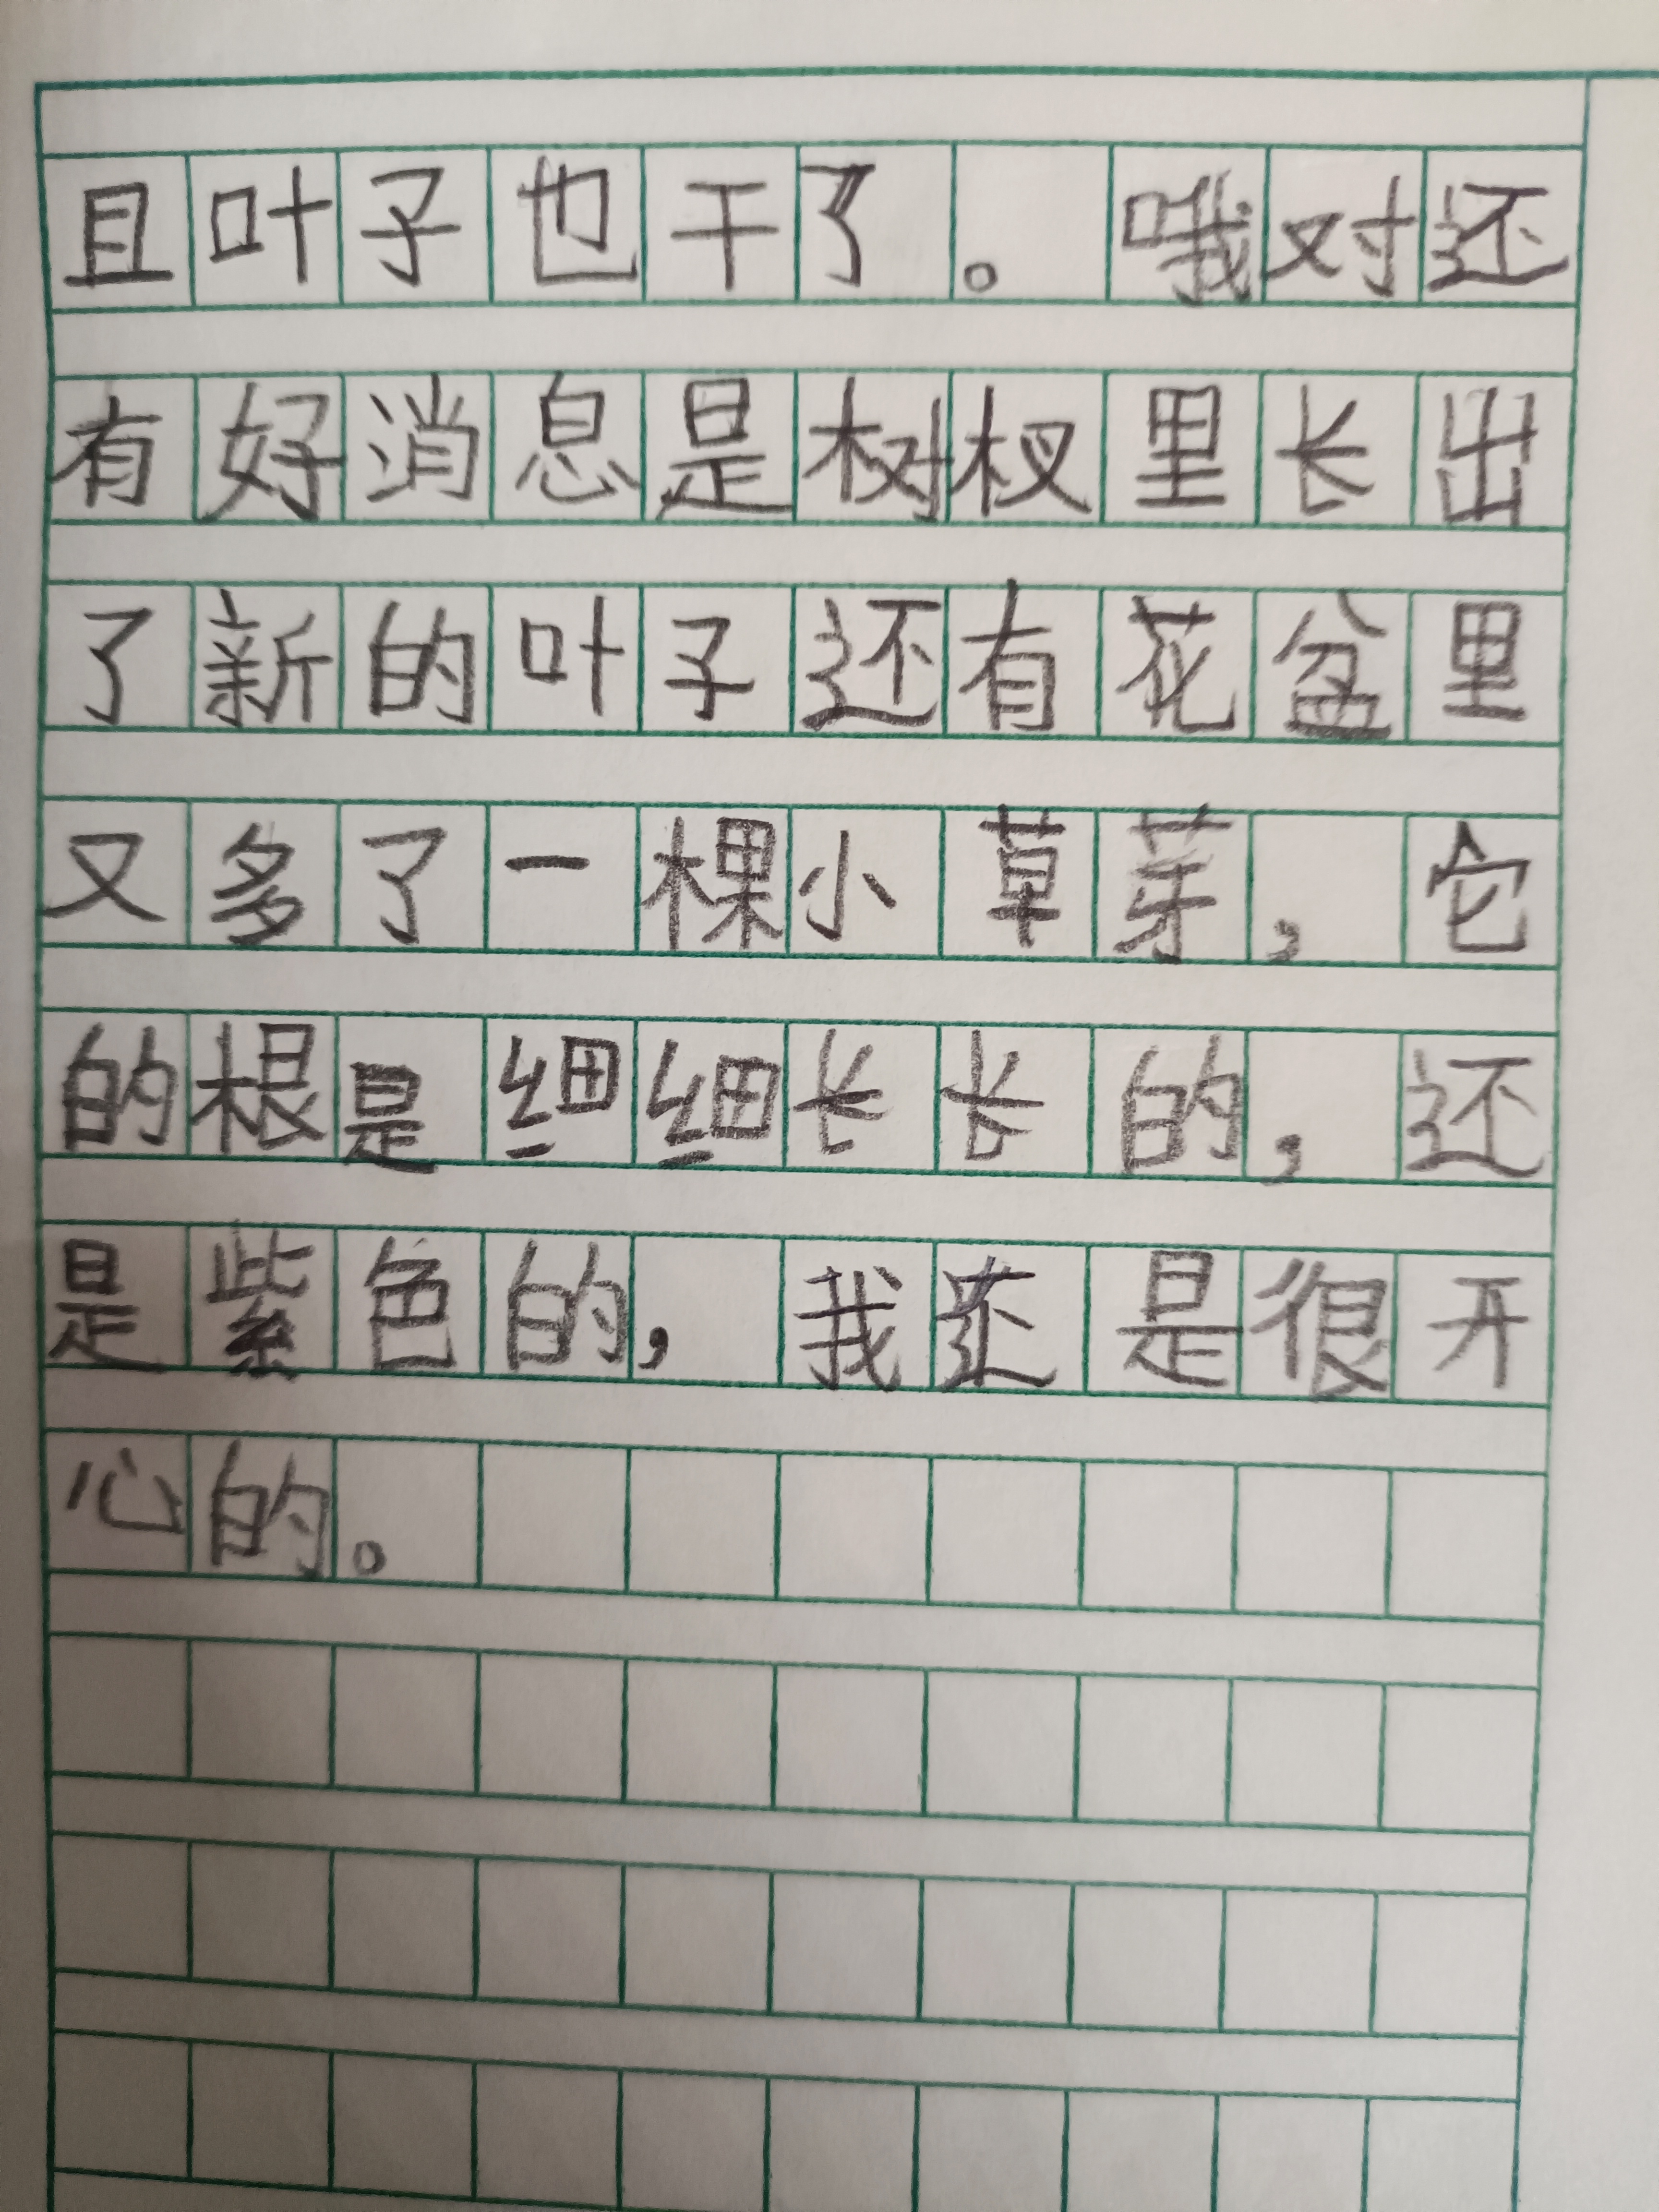 且叶子也干了。哦对还
有好消息是树杈里长出
了新的叶子还有花盆里
又多了一棵小草芽，它
的根是细细长长的，还
是紫色的，我还是很开
心的。